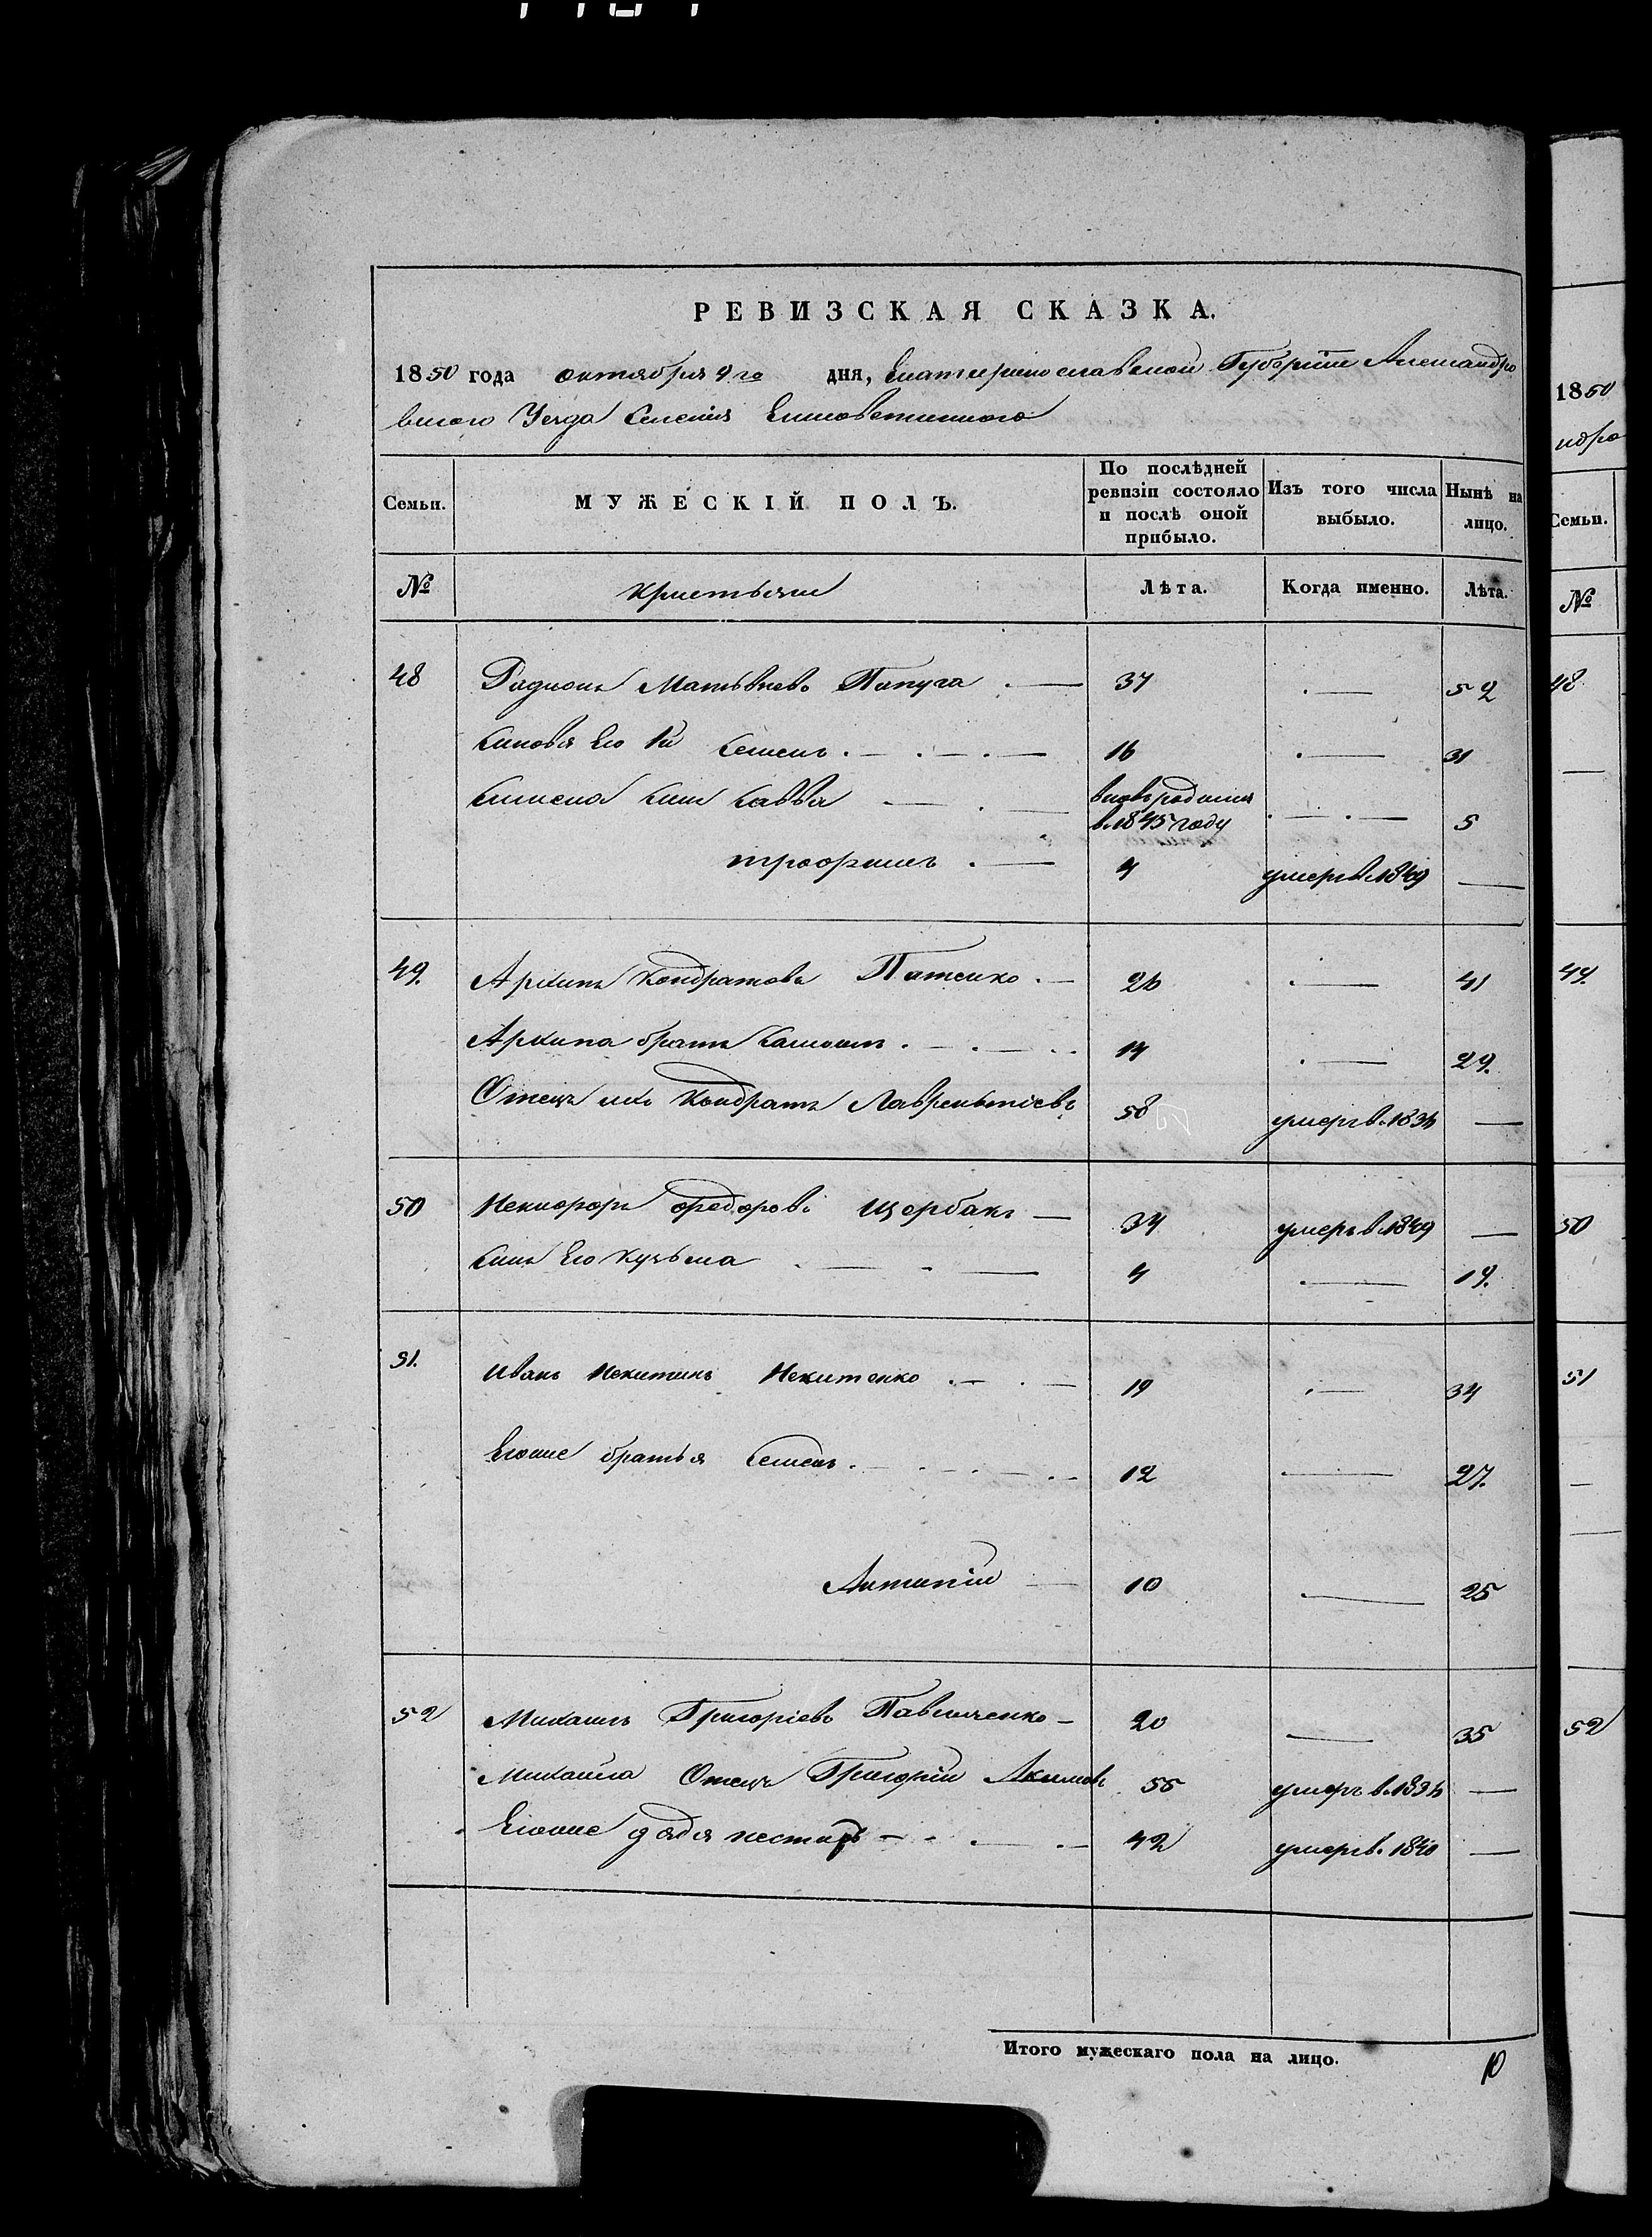 РЕВИЗСКАЯ СКАЗКА.
1850 года октября 9го дня, Екатеринославской Губернiи Александро
вского Уезда Селенiя Елисоветинского
Семьи.
МУЖЕСКІЙ ПОЛЪ.
По послѣдней ревизіи состояло и послѣ оной прибыло.
Изъ того числа выбыло.
Нынѣ на лицо.
№ Кристьяне Лѣта. Когда именно. Лѣта.
48 Радионъ Матвѣевъ Папуга . — 37 . — 52
Сыновя Его 1й Семенъ . — . — . — 16 . — 31
Семена Сынъ Савва — . — вновьродился в.1845 году . — . — 5
трофимъ . — 4 умеръ в.1849 —
49. Архипъ Кондратовъ Патенко . — 26 . — 41
Архипа братъ Самоилъ . — . — . . 14 . — 29.
Отецъ ихъ Кондратъ Лаврентиевъ 58 умеръ в.1836 —
50 Некифоръ федоровъ Щербакъ — 34 умеръ в.1849 —
Сынъ Его Кузьма . — . — 4 . — 19.
51. Иванъ Некитинъ Некитенко . — . — 19 . — 34
Егоже братья Семенъ . — . — . — . . 12 . — 27.
Антипiй — 10 . — 25
52 Михаилъ Григорiевъ Павличенко — 20 — 35
Михаила Отецъ Григорiй Акимовъ 55 умеръ в.1836 —
Егоже дядя нестиръ — . . — . — 42 умеръ в. 1840 —
Итого мужескаго пола на лицо. 10
1850
ндро
Семьи.
№
48
49.
50
51
52